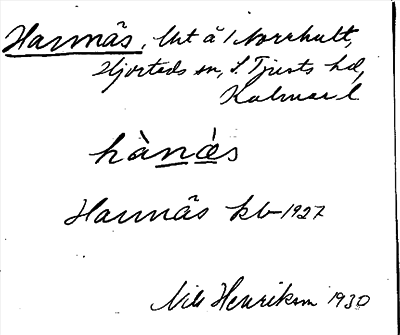 Harmnäs, lht å 1 Norrhult,
Hjorteds sn, S. Tjusts hd,
Kalmar l.
hànæs
Harmnäs kb 1927
Nils Henrikson 1930